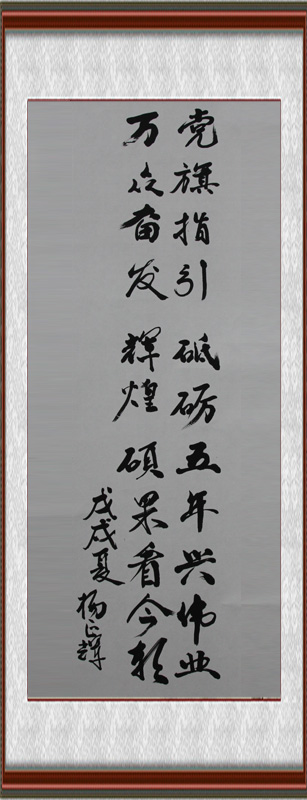 党旗指引 砥砺五年兴伟业
万众奋发 辉煌硕果看今朝
戊戌夏 杨正辉